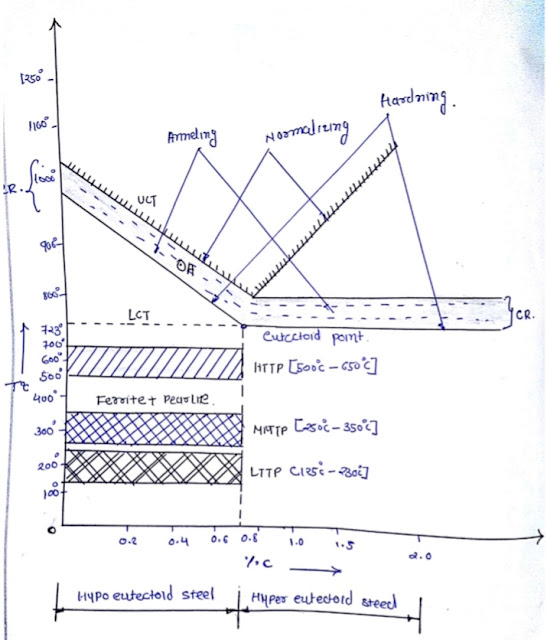 1250°
1160°
1000°
CR.
900°
800°
723°
700°
600°
500°
400°
300°
200°
100°
T°C
Anneling
Normalizing
Hardning.
UCT
OH
LCT
CR.
Eutectoid point.
HTTP [500°C - 650°C]
Ferrite + Pearlite.
MTTP [250°C - 350°C]
LTTP C125°C - 230°C]
0
0.2
0.4
0.6
0.8
1.0
1.5
2.0
%C
Hypo eutectoid steel
Hyper eutectoid steed